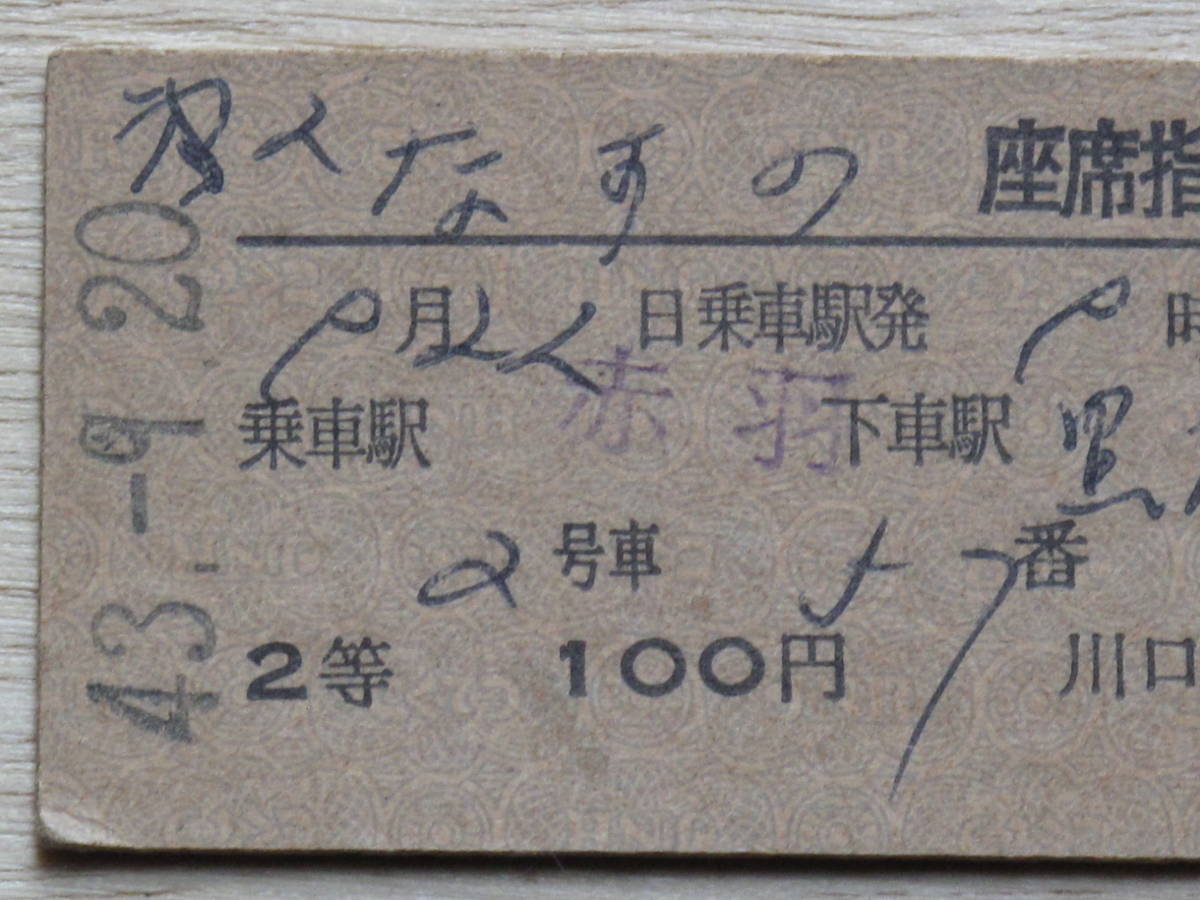 なすの 座席指
9月 日乗車駅発 9時
乗車駅 赤羽 下車駅 黒
2号車 57番
2等 100円 川口
43.-9.20